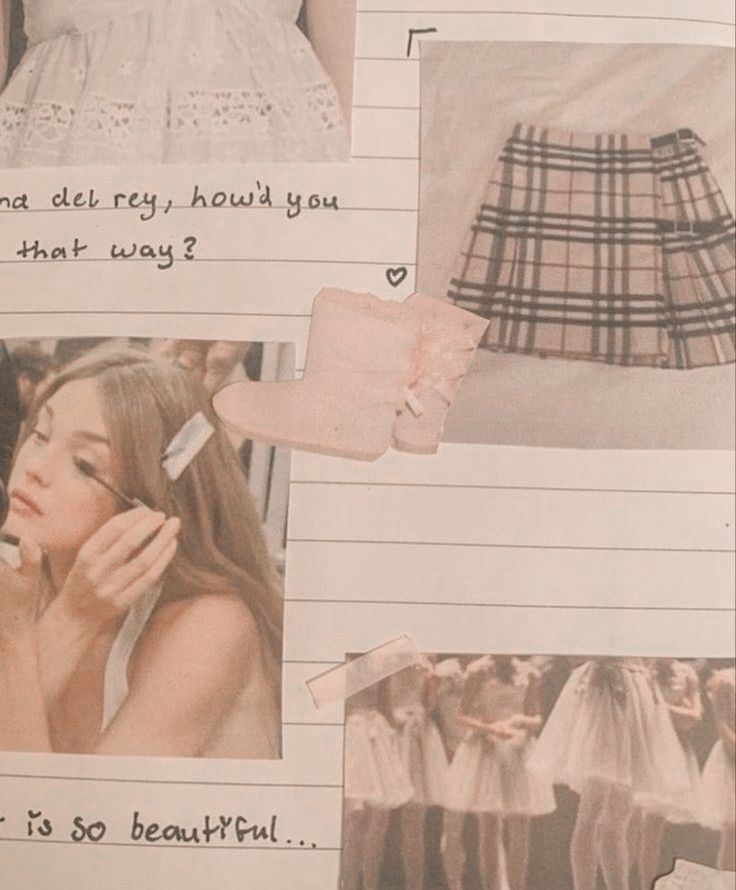 na del rey, how'd you
that way?
is so beautiful...